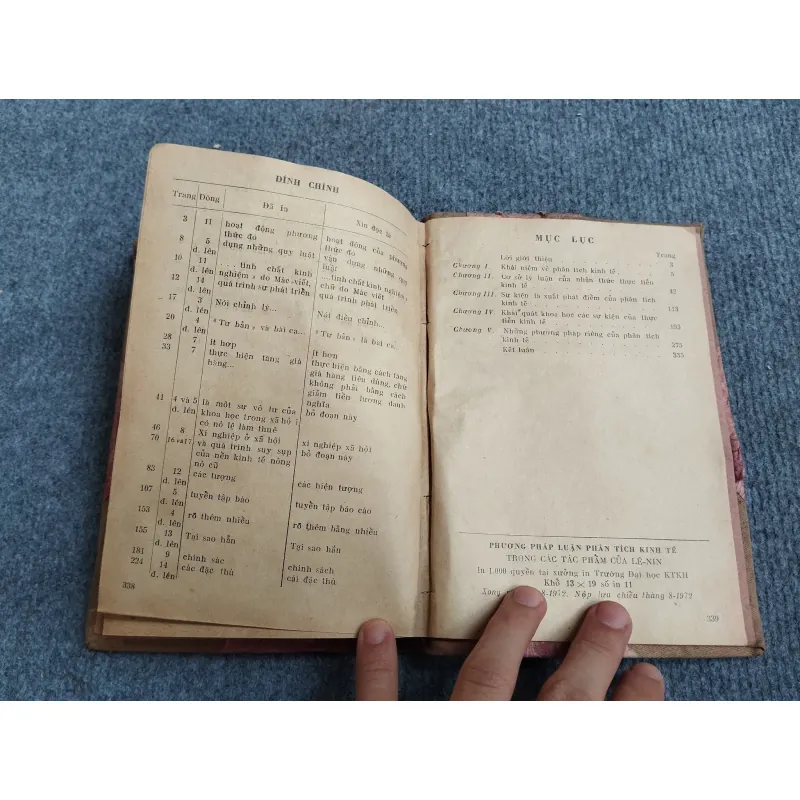 ĐÍNH CHÍNH
Trang Dòng Đã in Xin đọc là
3 11 hoạt động phương thức đó hoạt động của phương thức đó
8 5 d. lên dụng những quy luật vận dụng những quy luật
10 11 d. lên ...tính chất kinh nghiệm ...tính chất kinh nghiệm
12 14 do Mác viết, quá trình sự phát triển chữ do Mác viết quá trình phát triển
17 3 Nói chính lý... Nói điều chỉnh...
20 4 d. lên «Tư bản» và hài ca... «Tư bản» là bài ca
28 7 ít hợp ít hơn
33 7 thực hiện tăng giá hàng... thực hiện bằng cách tăng giá hàng tiêu dùng, chứ không phải bằng cách giảm tiền lương danh nghĩa
41 4 và 5 d. lên là một sự vô tư của khoa học trong xã hội có nô lệ làm thuê bỏ đoạn này
46 8 Xí nghiệp ở xã hội xí nghiệp xã hội
70 16 và 17 và quá trình suy sụp của nền kinh tế nông nô cũ bỏ đoạn này
83 12 d. lên các tượng các hiện tượng
107 5 d. lên tuyển tập báo tuyển tập báo cáo
153 4 d. lên rõ thêm nhiều rõ thêm bằng nhiều
155 13 d. lên Tại sao hẳn Tại sao hắn
181 9 chính sác chính sách
224 14 d. lên các đặc thù cái đặc thù
338
MỤC LỤC
Trang
Lời giới thiệu 3
Chương I. Khái niệm về phân tích kinh tế 5
Chương II. Cơ sở lý luận của nhận thức thực tiễn
kinh tế 42
Chương III. Sự kiện là xuất phát điểm của phân tích
kinh tế 113
Chương IV. Khái quát khoa học các sự kiện của thực
tiễn kinh tế 193
Chương V. Những phương pháp riêng của phân tích
kinh tế 273
Kết luận 335
PHƯƠNG PHÁP LUẬN PHÂN TÍCH KINH TẾ
TRONG CÁC TÁC PHẨM CỦA LÊ-NIN
In 1.000 quyển tại xưởng in Trường Đại học KTKH
Khổ 13 × 19 số in 11
Xong 8-1972. Nộp lưu chiểu tháng 8-1972
339